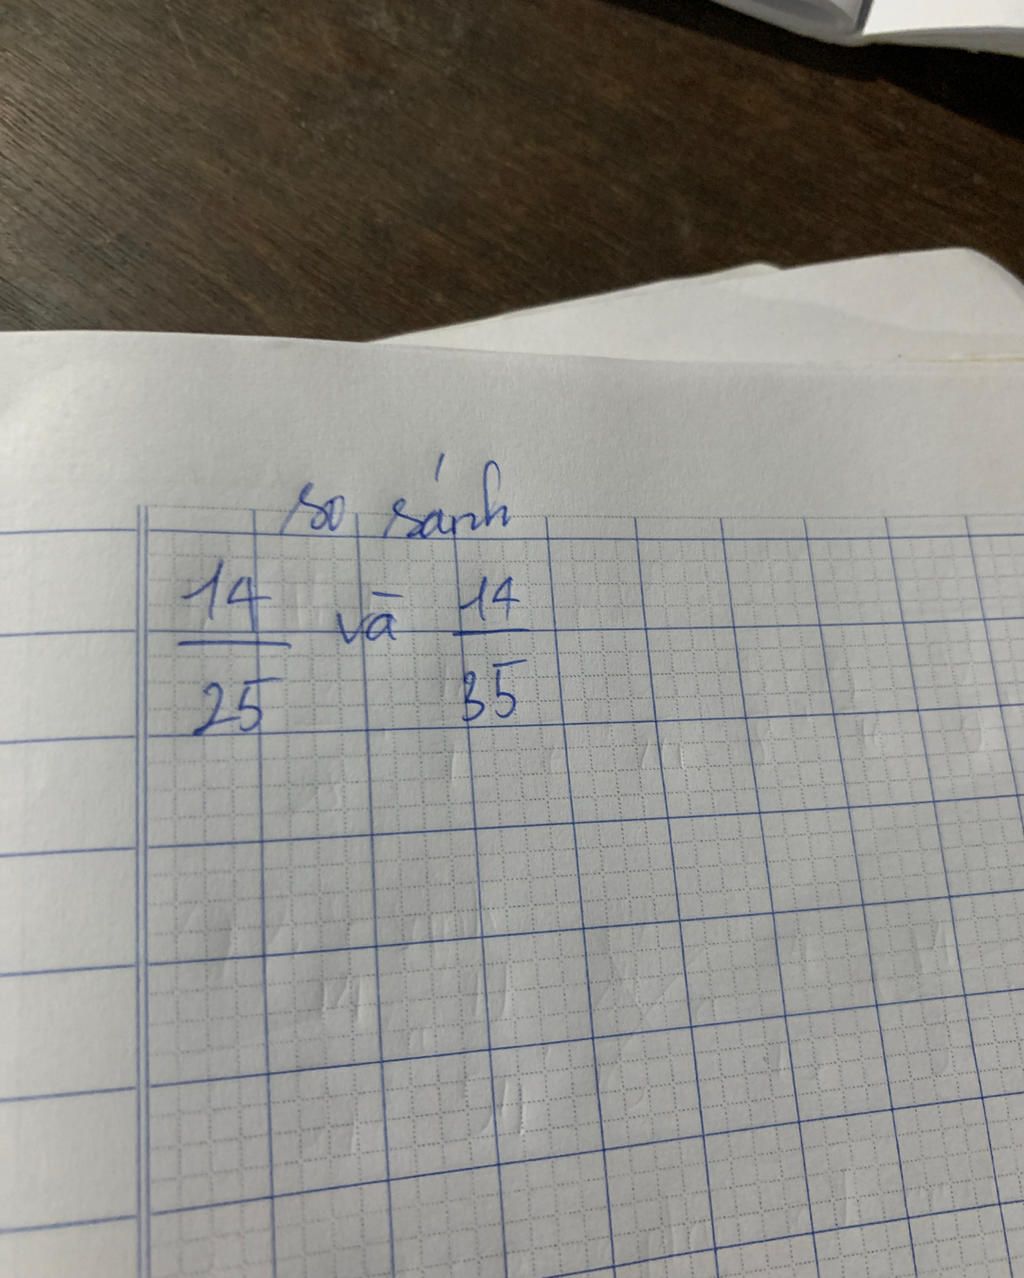 so sánh
14/25 và 14/35